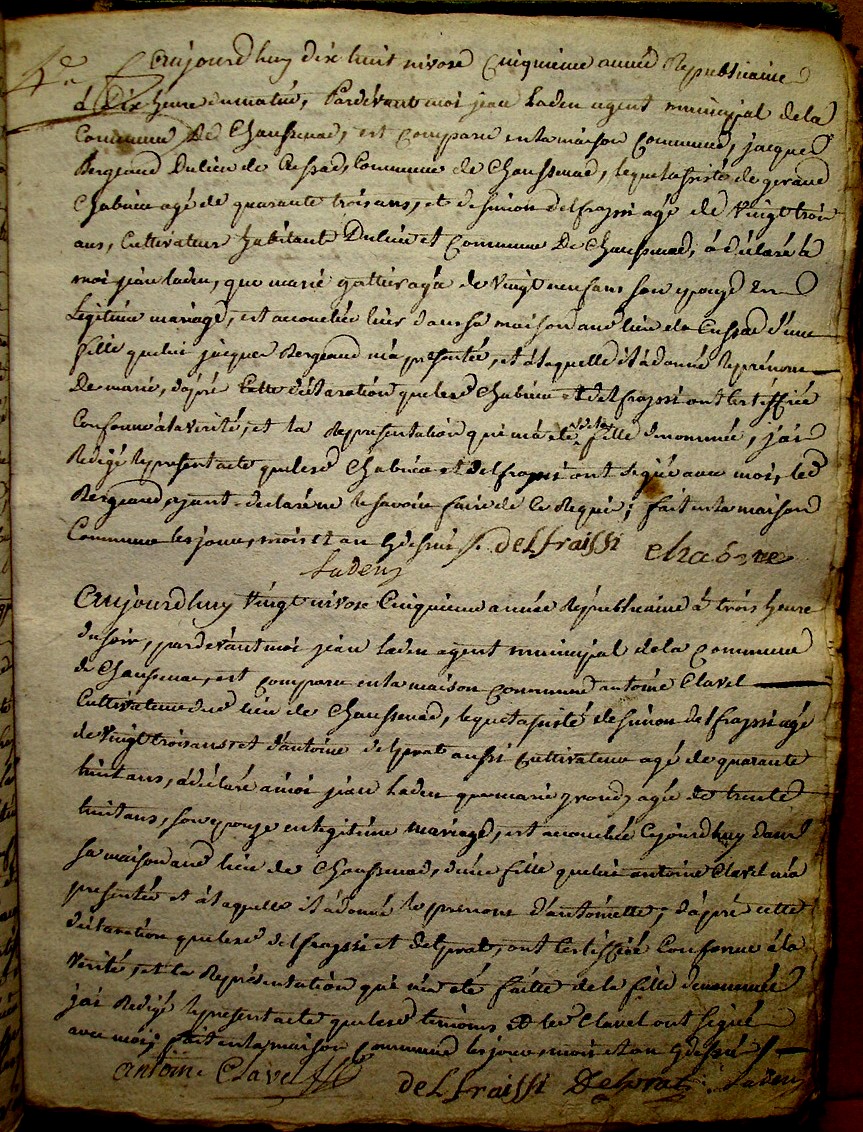 aujourdhuy dix huit nivose cinquieme année Republicaine
à Dix heure du matin, Pardevant moi jean Laden agent municipal de la
Commune De Chaussenac, est comparu en la maison Commune, jacques
Bergeaud Du lieu de Cussac, Commune de Chaussenac, lequel assisté de geraud
Chabrie agé de quarante trois ans, et de simon delfraissi agé de Vingt trois
ans, Cultivateurs habitants Du lieu et Commune De Chaussenac, à déclaré à
moi jean laden, que marie agée de Vingt neuf ans son epouze en
Legitime mariage, est accouchée hier dans sa maison aud lieu de Cussac d'une
fille que lui jacques Bergeaud m'a presentée, et à laquelle il à donné le prénom
De marie, d'apré Cette déclaration que lesd Chabrie et delfraissi ont certiffiée
Conforme à la verité, et la Representation qui m'a eté fille denommée, j'ai
Redigé le present acte que lesd Chabrie et delfraissi ont signé avec moi, led
Bergeaud ayant declaré ne le savoir faire de ce Requis; fait en la maison
Commune les jour, mois et an q dessus /. delfraissi chabrie
Laden
Aujourdhuy Vingt nivose Cinquieme année Républicaine à trois heure
du soir, pardevant moi jean Laden agent municipal de la Commune
de Chaussenac, est comparu en la maison commune antoine Clavel
Cultivateur du lieu de Chaussenac, lequel assisté de simon delfraissi agé
de Vingt trois ans et d'antoine delprat aussi Cultivateur agé de quarante
huit ans, à déclaré à moi jean Laden que marie agée de trente
huit ans, son epouze en legitime mariage, est accouchée cejourdhuy dans
sa maison aud lieu de Chaussenac, d'une fille que lui antoine Clavel m'a
presentée et à laquelle il à donné le prenom d'antoinette; d'apré cette
déclaration que lesd delfraissi et delprat, ont Certiffiée Conforme à la
Verité, et la Représentation qui m'a eté faitte de la fille denommée
j'ai Redigé le present acte que lesd temoins et led Clavel ont signé
avec moi; fait en la maison Commune les jour mois et an q dessus /.
antoine Clavel delfraissi Delprat Laden